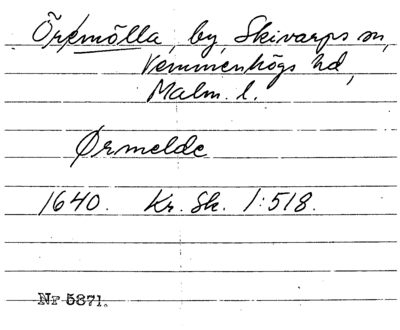 Öremölla, by, Skivarps sn,
Vemmenhögs hd,
Malm. l.
Ørmelde
1640. Kr. Sk. 1:518.
Nr 5871.